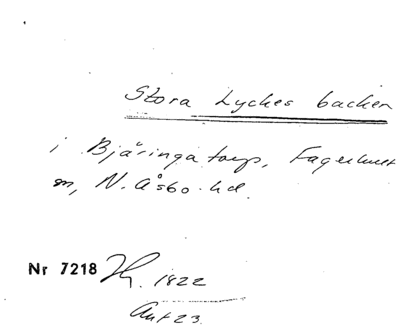 Stora Lyckes backen
i Bjäringatorp, Fagerhult
sn, N. Åsbo hd.
Nr 7218 1822
Ant 23.